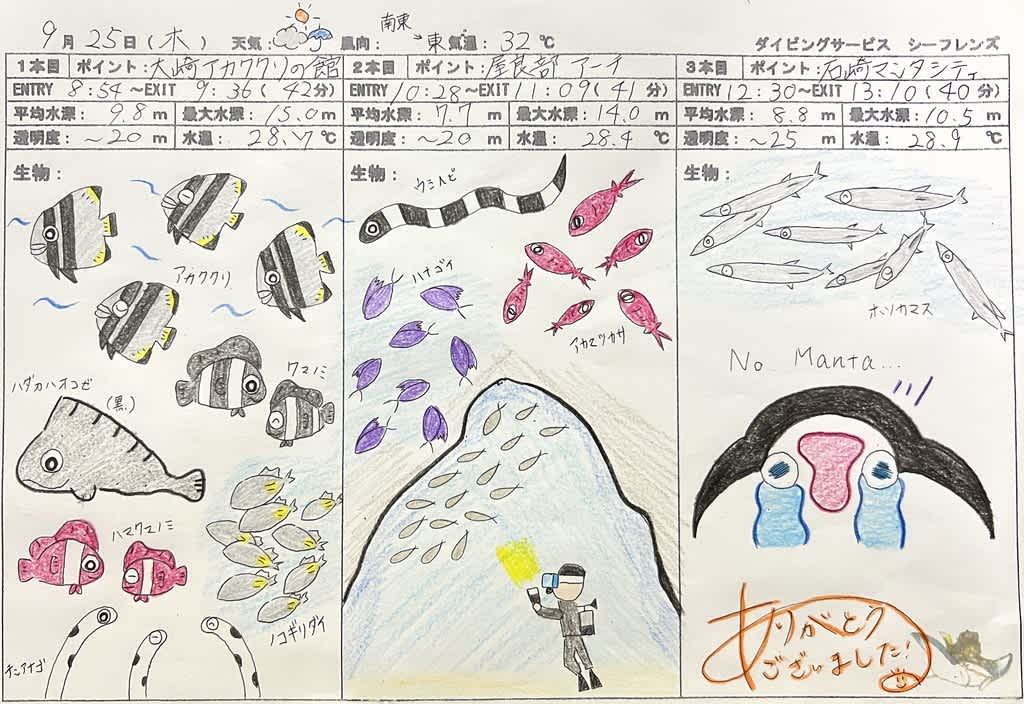 9月25日(木) 天気: 風向: 南東→東 気温: 32℃ ダイビングサービス シーフレンズ
1本目 ポイント:大崎アカククリの館
ENTRY 8:54~EXIT 9:36(42分)
平均水深: 9.8 m 最大水深: 15.0 m
透明度: ~20 m 水温: 28.7 ℃
生物:
アカククリ
クマノミ
ハダカハオコゼ
(黒)
ハマクマノミ
ノコギリダイ
チンアナゴ
2本目 ポイント:屋良部アーチ
ENTRY 10:28~EXIT 11:09(41分)
平均水深: 7.7 m 最大水深: 14.0 m
透明度: ~20 m 水温: 28.4 ℃
生物:
ウミヘビ
ハナゴイ
アカマツカサ
3本目 ポイント:石崎マンタシティ
ENTRY 12:30~EXIT 13:10(40分)
平均水深: 8.8 m 最大水深: 10.5 m
透明度: ~25 m 水温: 28.9 ℃
生物:
ホソカマス
No Manta...
ありがとう
ございました!